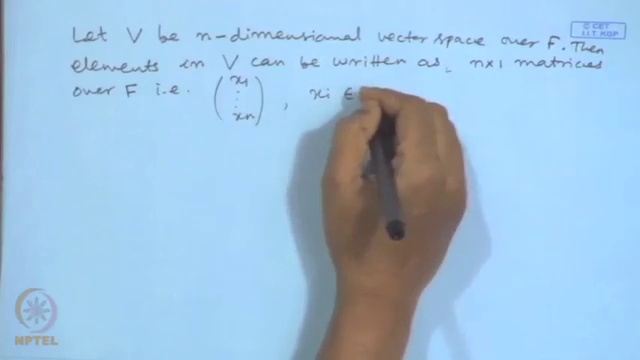 © CET
I.I.T. KGP
Let V be n-dimensional vector space over F. Then
elements in V can be written as, n×1 matrices
over F i.e. (x1 ⋮ xn), xi ∈
NPTEL